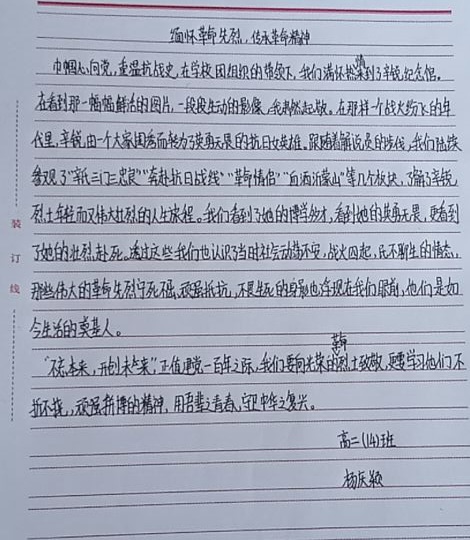 缅怀革命先烈，传承革命精神
巾帼心向党，重温抗战史，在学校团组织的带领下，我们满怀热情来到了辛锐纪念馆。
在看到那一幅幅鲜活的图片，一段段生动的影像，我肃然起敬。在那样一个战火纷飞的年
代里，辛锐由一个大家闺秀而转为了英勇无畏的抗日女英雄。跟随着解说员的步伐，我们陆续
参观了"辛氏三门三忠良""奔赴抗日战线""革命情侣""血洒沂蒙山"等几个板块，了解了辛锐
烈士年轻而又伟大壮烈的人生旅程。我们看到了她的博学多才，看到她的英勇无畏，更看到
了她的壮烈赴死。透过这些我们也认识了当时社会动荡不安，战火四起，民不聊生的情态，
那些伟大的革命先烈宁死不屈，顽强抵抗，不畏生死的身影也浮现在我们眼前，他们是如
今生活的奠基人。
"不忘本来，开创未来"，正值建党一百年之际，我们要向光荣的革命烈士致敬，更要学习他们不
折不挠，顽强拼搏的精神，用吾辈之青春，守卫中华之复兴。
高二(14)班
杨庆颖
装
订
线